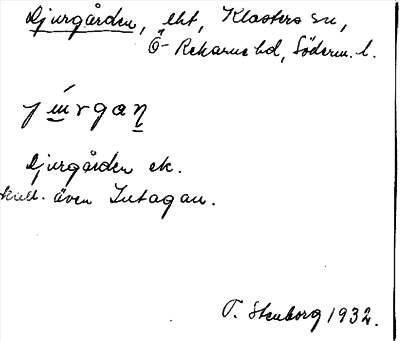 Djurgården, lht, Klosters sn,
Ö-Rekarne hd, Söderm. l.
júrgaṉ
Djurgården ek.
kall. även Jutagan.
T. Stenborg 1932.